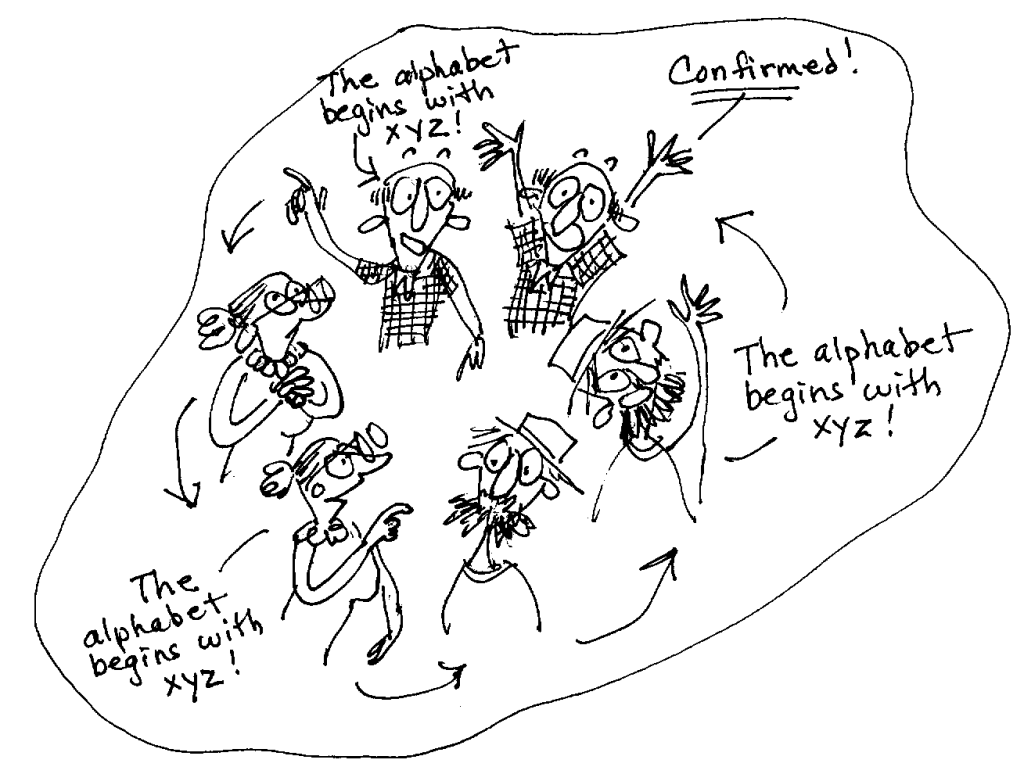 The alphabet
begins with
xyz!
Confirmed!
The alphabet
begins with
xyz!
The
alphabet
begins with
xyz!